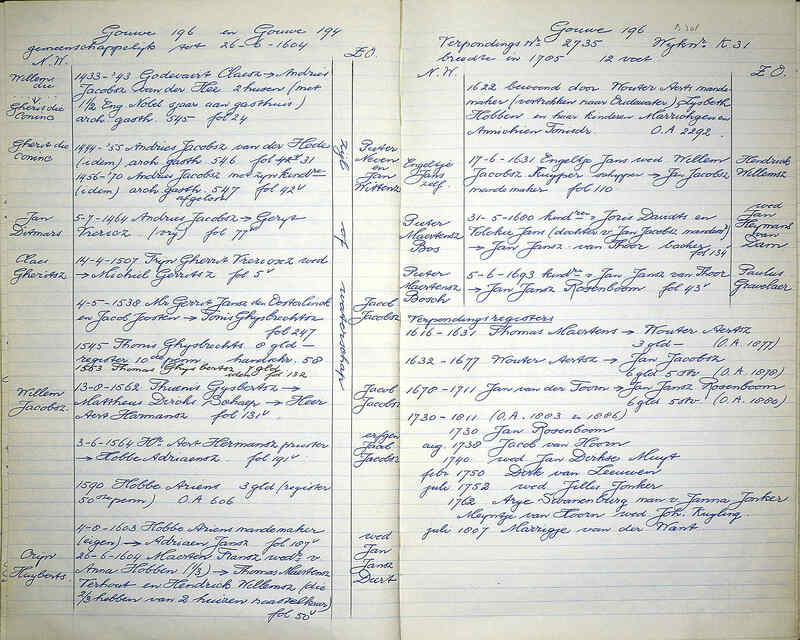 Gouwe 196 en Gouwe 194
gemeenschappelijk tot 26-6-1604
N.W.
Z.O.
Willem die
1433-'43 Godevaert Claesz → Andries
Jacobsz van der Hee 2 huisen (met
Gherit die Coninc
1/2 Eng Nobel spaar aan gasthuis)
arch gasth. 545 fol 24
Gherit die Coninc
1444-'55 Andries Jacobsz van der Hede
(idem) arch gasth 546 fol 31
1456-'70 Andries Jacobsz met zyn kindren
(idem) arch gasth. 547 fol 42v
afgelost
Pieter
en
Jan
Wittensz
zyl
of
waterschap
Jan Ditmars
5-7-1464 Andries Jacobsz → Geryt
fol 77v
Claes Gheritsz
14-4-1507 Tryn Gherrit wed
→ Michiel Gerritsz fol 5v
4-5-1538 Mr Gerrit Jansz den Oosterlinck
en Jacob Joosten → Tonis Ghysbrechtsz
fol 247
Jacob Jacobsz
1545 Thonis Ghysbrechts 8 gld —
register 10de penn. handschr. 58
1553 Thomas Ghysbertsz 7 gld
idem fol 132
Willem Jacobsz
13-8-1562 Thuenis Gysbertsz →
Mattheus Dircks Schaep → Heer
Aert Harmansz fol 131v
Jacob Jacobsz
3-6-1564 Hr Aert Hermansz priester
→ Hobbe Adriaensz fol 191v
erfgen Jacob Jacobsz
1590 Hobbe Ariens 3 gld (register
50ste penn) O.A 606
4-8-1603 Hobbe Ariens mandemaker
(eigen) → Adriaen Jansz fol 187v
Cryn Huyberts
26-6-1604 Maerten Fransz wedr v
Anna Hobben (1/3) → Thomas Maertensz
Verhout en Hendrick Willemsz (die
2/3 hebben van 2 huizen naast elkaar)
fol 50v
wed
Jan
Jansz
Dirt
Gouwe 196
Verpondings No 2735 Wykno K.31
breedte in 1705 12 voet
N.W.
Z.O.
1622 bewoond door Wouter Aerts mande
maker (vertrokken naar Oudewater) Lysbeth
Hobben en haar kinderen Marrichgen en
Annichien O.A 2292.
Engeltje Jans zelf.
17-6-1631 Engeltje Jans wed Willem
Jacobsz Kuyper schipper → Jan Jacobsz
mandemaker fol 110
Hendrick Willemsz
Pieter Maertensz Bos
31-5-1680 kindren v Joris Davids en
Jans (dochter v Jan Jacobsz mandem)
→ Jan Jansz van Thoor backer fol 134
wed Jan Heymans van Dam
Pieter Maertensz Bosch
5-6-1693 kindren v Jan Jansz van Thoor
→ Jan Jansz Rosenboom fol 43v
Paulus Gravelaer
Verpondingsregisters
1616-1631 Thomas Maertens → Wouter Aertsz
3 gld — (O.A. 1877)
1632-1677 Wouter Aertsz → Jan Jacobsz
6 gld 5 stv (O.A. 1878)
1678-1711 Jan van der Toorn → Jan Jansz Rosenboom
6 gld 5 stv (O.A. 1880)
1730-1811 (O.A. 1883 en 1886)
1730 Jan Rosenboom
aug. 1738 Jacob van Hoorn
1740 wed Jan Derkse Muyt
febr 1750 Dirk van Leeuwen
juli 1752 wed Jilles Jonker
1762 Arye Swanenburg man v Janna Jonker
Meyntje van Hoorn wed Joh. Kugling.
juli 1807 Marrigje van der Want